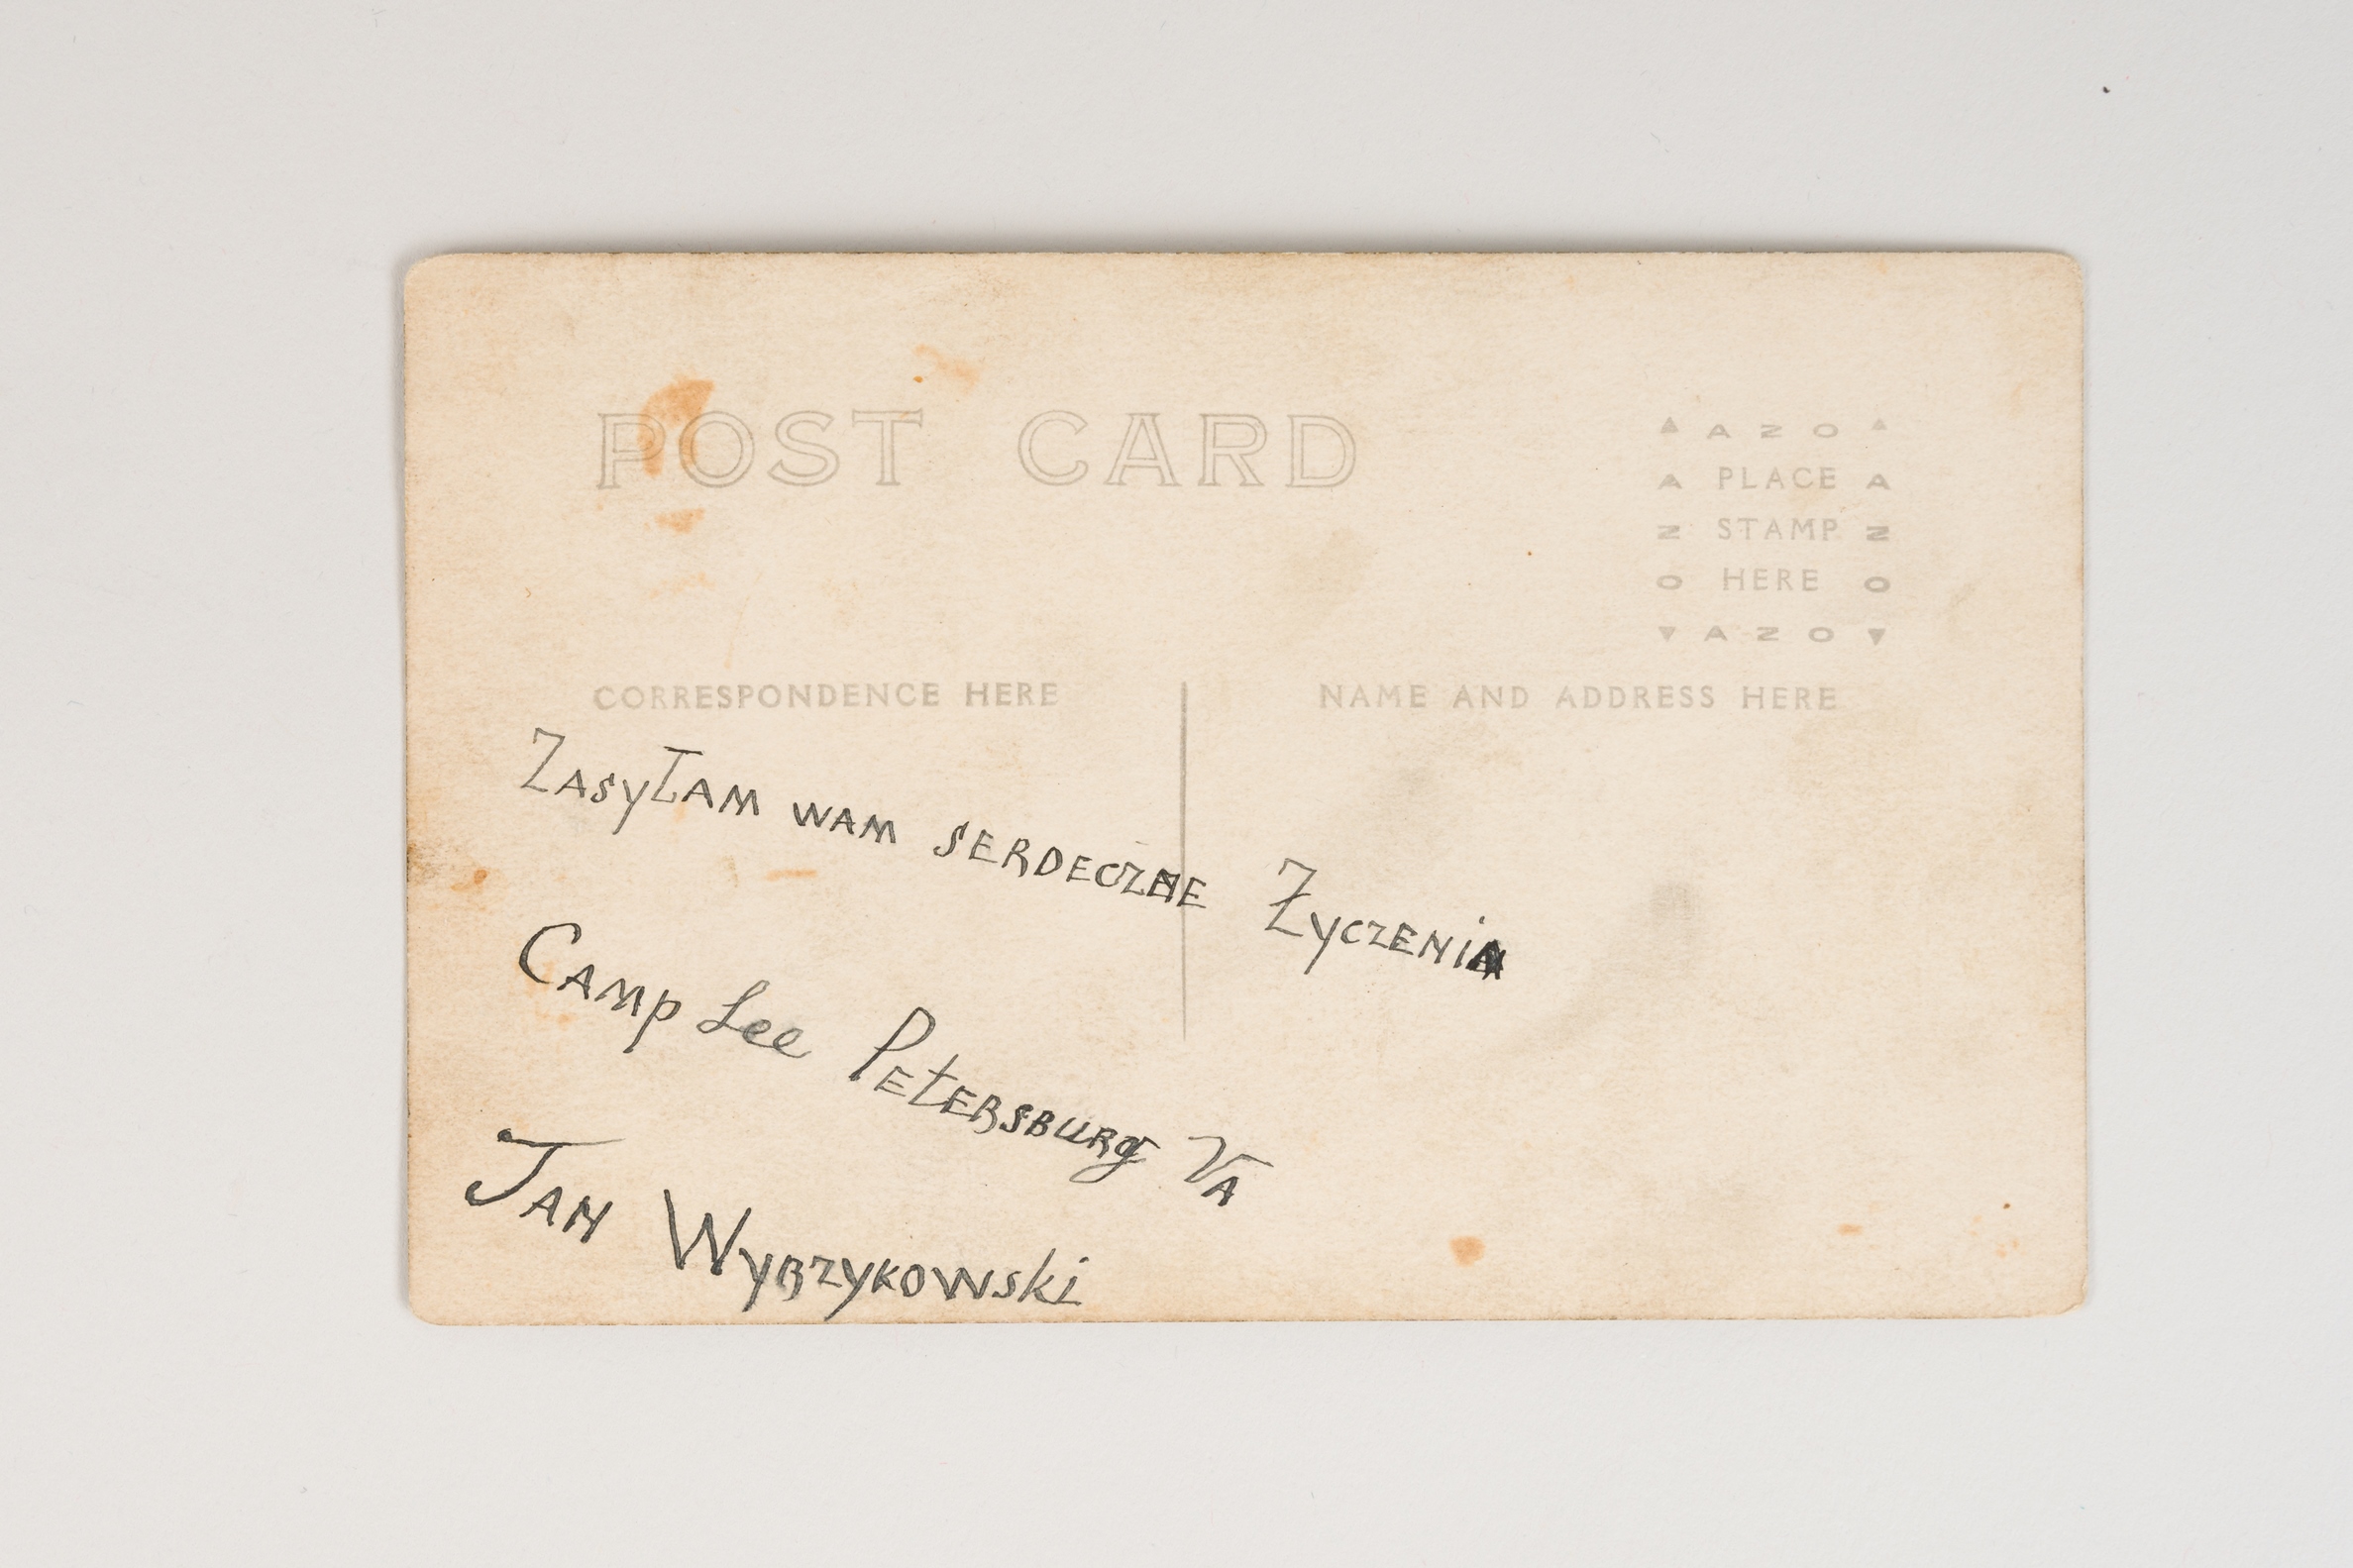 POST CARD
▲ AZO ▲
A PLACE A
Z STAMP Z
O HERE O
▼ AZO ▼
CORRESPONDENCE HERE
NAME AND ADDRESS HERE
Zasyłam wam serdeczne Życzenia
Camp Lee Petersburg Va
Jan Wyrzykowski